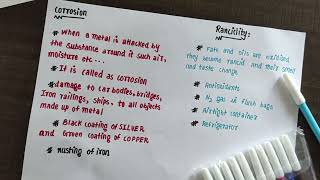 Corrosion
* When a metal is attacked by
the substance around it such air,
moisture etc...
* It is called as corrosion
* damage to car bodies, bridges,
Iron railings, ships, to all objects
made up of metal
* Black coating of SILVER
and Green coating of COPPER
* Rusting of iron
Rancidity:
* Fats and oils are oxidised
they become rancid and their smell
and taste change
* Antioxidants
* N₂ gas in flush bags
* Airtight container
* Refrigerator